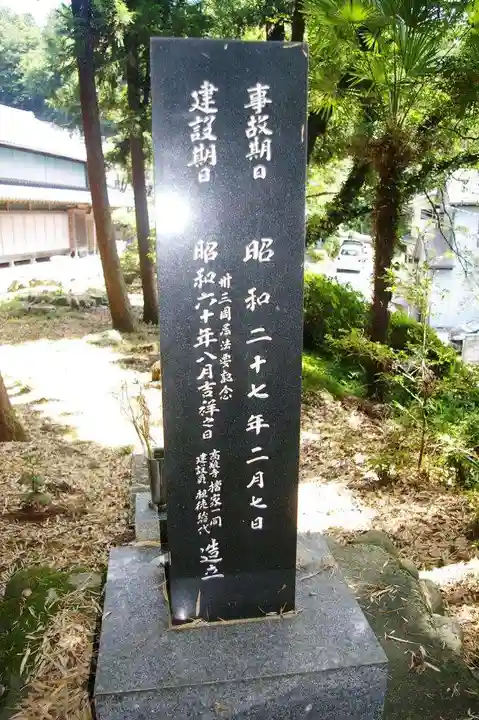 事故期日 昭和二十七年二月七日
建設期日 昭和六十年八月吉祥之日
卅三回忌法要記念
檀家一同
建設
造立